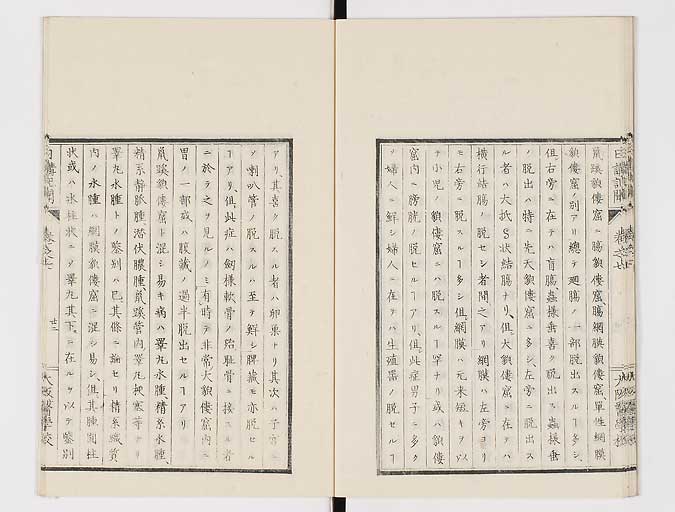 鼠蹊貌僂窩ニ腸貌僂窩、腸網膜貌僂窩、單性網膜
貌僂窩ノ別アリ總テ廻腸ノ一部脱出スルヿ多シ、
但右旁ニ在テハ盲腸、蟲樣垂喜ク脱出ス蟲樣垂
ノ脱出ハ特ニ先天貌僂窩ニ多シ、左旁ニ脱出ス
ル者ハ大抵S状結腸ナリ、但大貌僂窩ニ在テハ
横行結腸ノ脱セシ者間之アリ網膜ハ左旁ヨリ
モ右旁ニ脱スルヿ多シ但網膜ハ元来短キヲ以
テ小児ノ貌僂窩ニハ脱スルヿ罕ナリ或ハ貌僂
窩内ヘ膀胱ノ脱スルヿアリ、但此症男子ニ多ク
ノ婦人ニ鮮シ婦人ニ在テハ生殖器ノ脱セルヿ
アリ、其喜ク脱スル者ハ卵巣トリ其次ハ子宮ニ
ソ喇叭管ノ脱スルハ至テ鮮シ脾藏モ亦脱セル
ヿアリ、但此症ハ劔樣軟骨ノ殆耻骨ニ接スル者
ニ於テ之ヲ見ルノミ有時テ非常大貌僂窩内ニ
胃ノ一部或ハ腹藏ノ過半脱出セルヿアリ
鼠蹊貌僂窩ト混シ易キ病ハ睾丸水腫、精系水腫、
精系静脈腫、潜伏膿腫、鼠蹊管内睾丸梗塞等ナリ
睾丸水腫トノ鑒別ハ已其條ニ論セリ精系織質
内ノ水腫ハ網膜貌僂窩ニ混シ易シ、但其腫圓柱
状或ハ水柱状ニソ睾丸其下ニ在ルヲ以テ鑒別
日講記聞
大阪醫學校
廿二